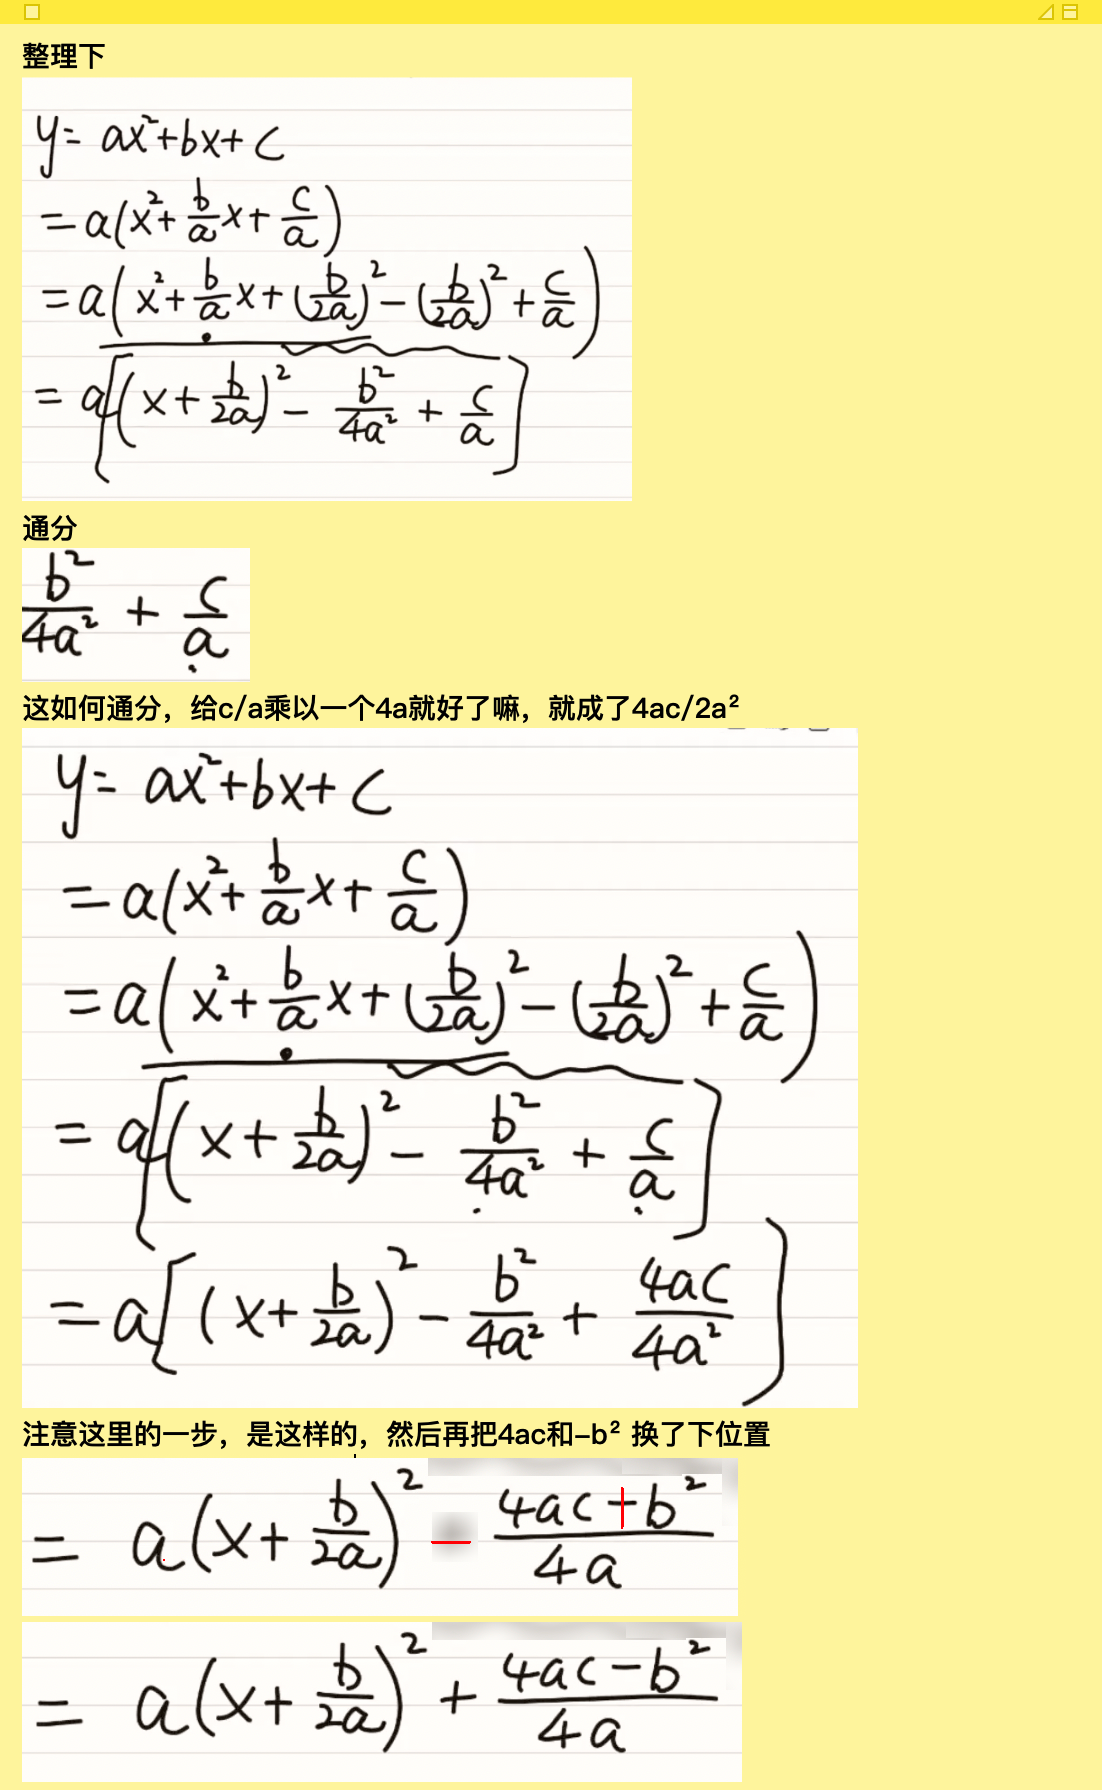 整理下
y= ax²+bx+c
=a(x²+b/a x+c/a)
=a(x²+b/a x+(b/2a)²-(b/2a)²+c/a)
=a[(x+b/2a)²-b²/4a²+c/a]
通分
b²/4a²+c/a
这如何通分，给c/a乘以一个4a就好了嘛，就成了4ac/2a²
y= ax²+bx+c
=a(x²+b/a x+c/a)
=a(x²+b/a x+(b/2a)²-(b/2a)²+c/a)
=a[(x+b/2a)²-b²/4a²+c/a]
=a[(x+b/2a)²-b²/4a²+4ac/4a²]
注意这里的一步，是这样的，然后再把4ac和-b² 换了下位置
= a(x+b/2a)²-4ac+b²/4a
= a(x+b/2a)²+4ac-b²/4a